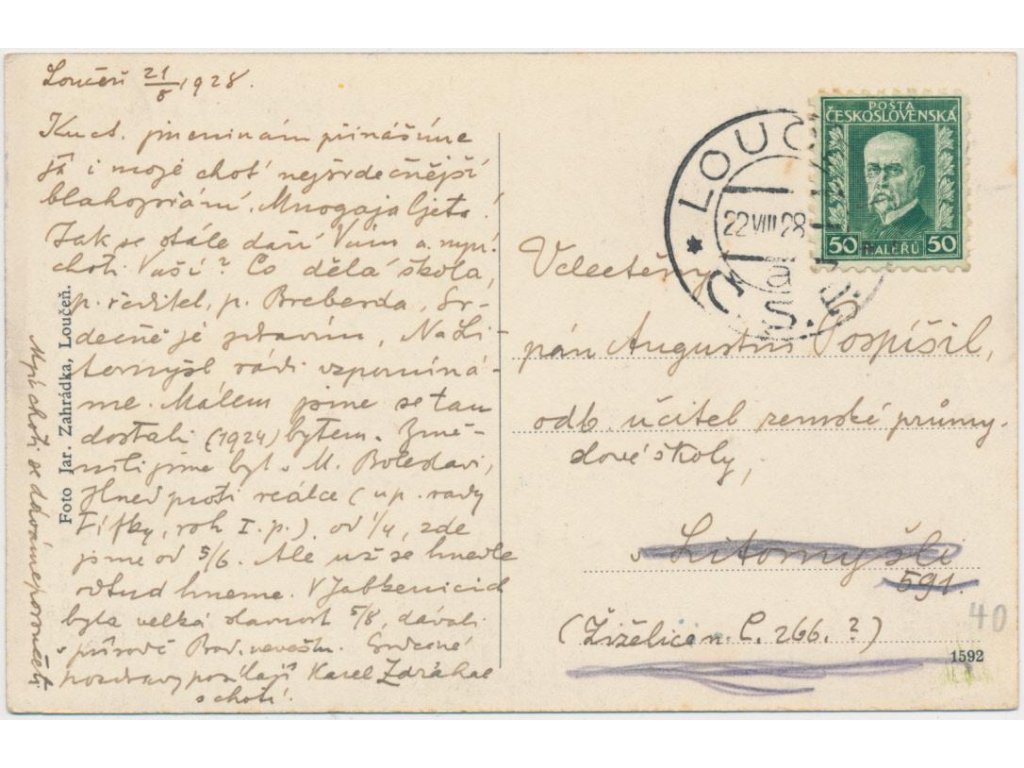 Loučeň 21/8 1928.
K uct. jmeninám přinášíme
já i moje choť nejsrdečnější
blahopřání. Mnogaja ljeta!
Jak se stále daří Vám a mpí
choti Vaší? Co dělá škola,
p. ředitel, p. Breberda, Sr-
dečně je zdravím, Na Li-
tomyšl rádi vzpomíná-
me. Málem jsme se tam
dostali (1924) bytem. Změ-
nili jsme byt v M. Boleslavi,
hned proti reálce (u p. rady
Fifky, roh I. p.). od 1/4, zde
jsme od 5/6. Ale už se hnedle
odtud hneme. V Jabkenicích
byla velká slavnost 5/8, dávali
v přírodě Prod. nevěstu. Srdečné
pozdravy posílají Karel Zdráhal
s chotí.
Mpí choti se dáváme poroučeti
Foto Jar. Zahrádka, Loučeň.
POŠTA
ČESKOSLOVENSKÁ
50 HALÉŘŮ 50
LOUČ
22 VIII 28
a
Č.S.
Velectěný
pán Augustin Pospíšil,
odb. učitel zemské průmy-
slové školy,
v Litomyšli
591.
(Žiželice n. C. 266. ?)
40
1592